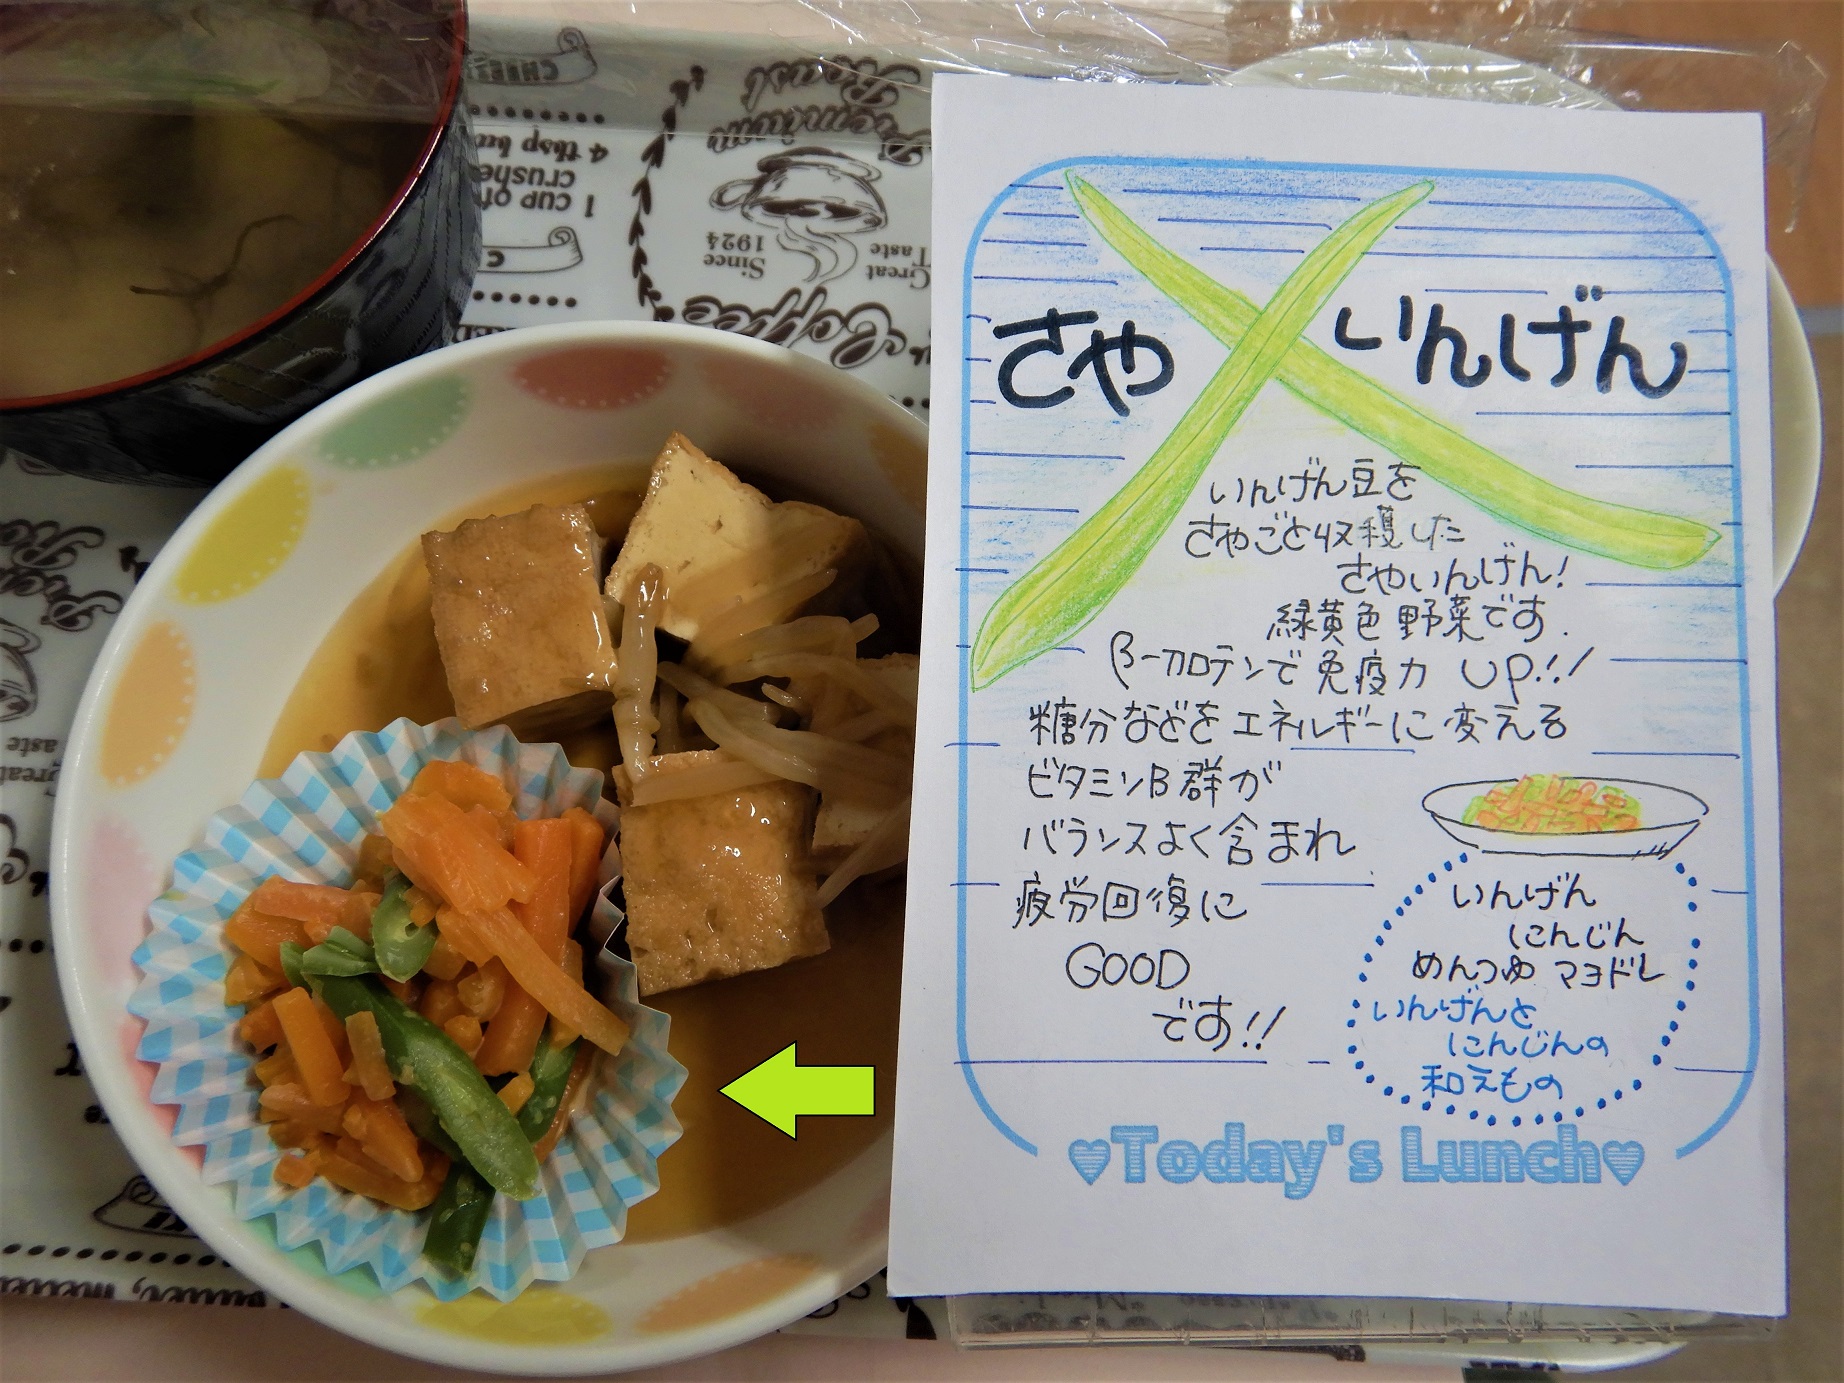 CHEES
4 tbsp bu
crushe
1 CUP OF
Premium
Roast
Since
1924
Great
Taste
Coffee
さやいんげん
いんげん豆を
さやごと収穫した
さやいんげん!
緑黄色野菜です.
β-カロテンで免疫力 UP!!
糖分などをエネルギーに変える
ビタミンB群が
バランスよく含まれ
疲労回復に
GOOD
です!!
いんげん
にんじん
めんつゆ マヨドレ
いんげんと
にんじんの
和えもの
♥Today's Lunch♥